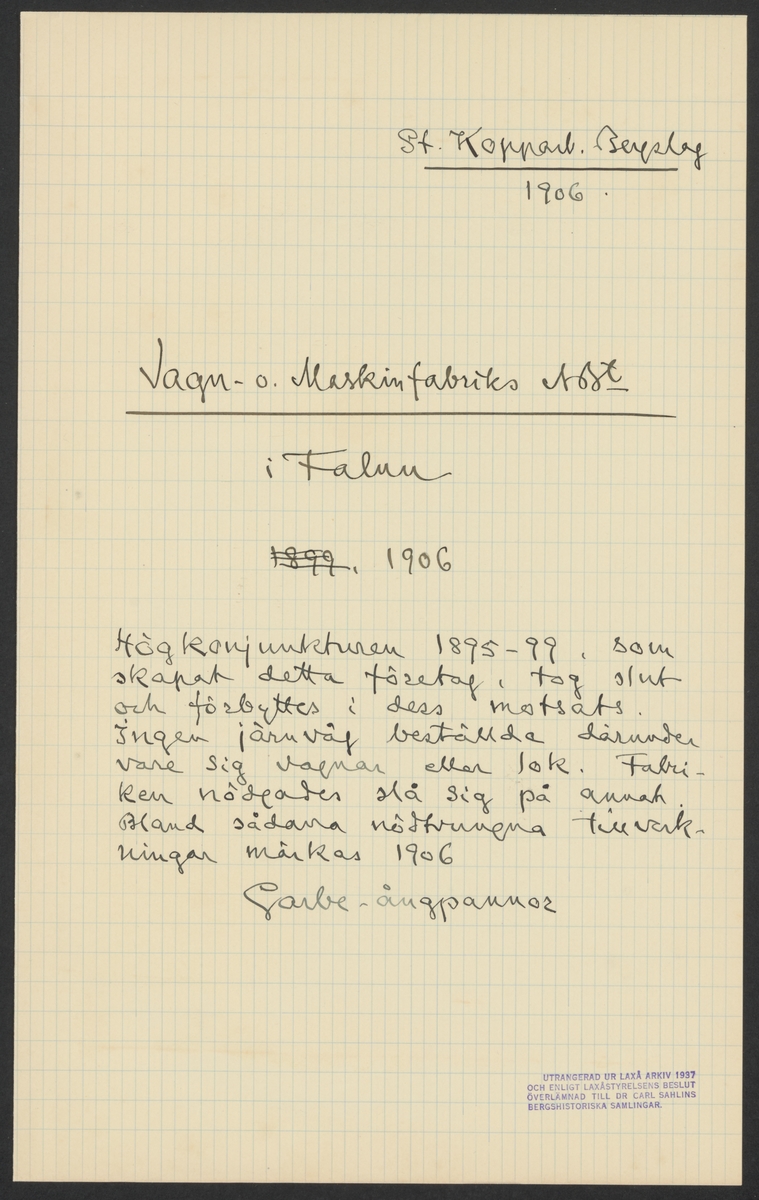 St. Kopparb. Bergslag
1906.
Vagn- o. Maskinfabriks ABt
i Falun
1899. 1906
Högkonjunkturen 1895-99, som
skapat detta företag, tog slut
och förbyttes i dess motsats.
Ingen järnväg beställde därunder
vare sig vagnar eller lok. Fabri-
ken nödgades slå sig på annat.
Bland sådana nödtvungna tillverk-
ningar märkas 1906
Garbe-ångpannor
UTRANGERAD UR LAXÅ ARKIV 1937
OCH ENLIGT LAXÅSTYRELSENS BESLUT
ÖVERLÄMNAD TILL DR CARL SAHLINS
BERGSHISTORISKA SAMLINGAR.